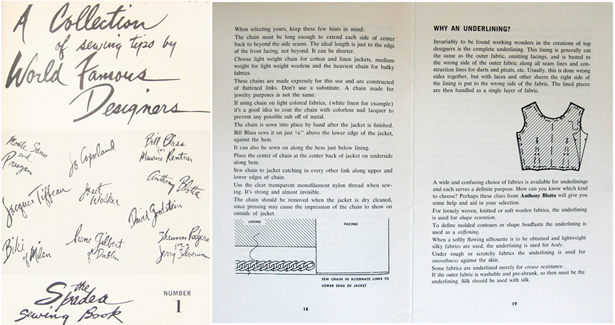 A Collection
of sewing tips by
World Famous
Designers
Monte Sano
and
Pruzan
Jo Copeland
Bill Blass
for
Maurice Rentner
Jacques Tiffeau
Joset
Walker
Anthony Blotta
David Goodstein
Biki
of Milan
Irene Gilbert
of Dublin
Shannon Rodgers
for
Jerry Silverman
the
Spadea
Sewing Book
NUMBER
1
When selecting yours, keep these few hints in mind:
The chain must be long enough to extend each side of center
back to beyond the side seams. The ideal length is just to the edge
of the front facing, not beyond. It can be shorter.
Choose light weight chain for cotton and linen jackets, medium
weight for light weight woolens and the heaviest chain for bulky
fabrics.
These chains are made expressly for this use and are constructed
of flattened links. Don't use a substitute. A chain made for
jewelry purposes is not the same.
If using chain on light colored fabrics, (white linen for example)
it's a good idea to coat the chain with colorless nail lacquer to
prevent any possible rub off of metal.
The chain is sewn into place by hand after the jacket is finished.
Bill Blass sews it on just ⅛" above the lower edge of the jacket,
against the hem.
It can also be sewn on along the hem just below lining.
Place the center of chain at the center back of jacket on underside
along hem.
Sew chain to jacket catching in every other link along upper and
lower edges of chain.
Use the clear transparent monofilament nylon thread when sew-
ing. It's strong and almost invisible.
The chain should be removed when the jacket is dry cleaned,
since pressing may cause the impression of the chain to show on
outside of jacket.
LINING
FACING
SEW CHAIN IN ALTERNATE LINKS TO
LOWER EDGE OF JACKET
18
WHY AN UNDERLINING?
Invariably to be found working wonders in the creations of top
designers is the complete underlining. This lining is generally cut
the same as the outer fabric, omitting facings, and is basted to
the wrong side of the outer fabric along all seam lines and con-
struction lines for darts and pleats, etc. Usually, this is done wrong
sides together, but with laces and other sheers the right side of
the lining is put to the wrong side of the fabric. The lined pieces
are then handled as a single layer of fabric.
A wide and confusing choice of fabrics is available for underlinings
and each serves a definite purpose. How can you know which kind
to choose? Perhaps these clues from Anthony Blotta will give you
some help and aid in your selection.
For loosely woven, knitted or soft woolen fabrics, the underlining
is used for shape retention.
To define molded contours or shape bouffants the underlining is
used as a stiffening.
When a softly flowing silhouette is to be obtained and lightweight
silky fabrics are used, the underlining is used for body.
Under rough or scratchy fabrics the underlining is used for
smoothness against the skin.
Some fabrics are underlined merely for crease resistance.
If the outer fabric is washable and pre-shrunk, so then must be the
underlining. Silk should be used with silk.
19